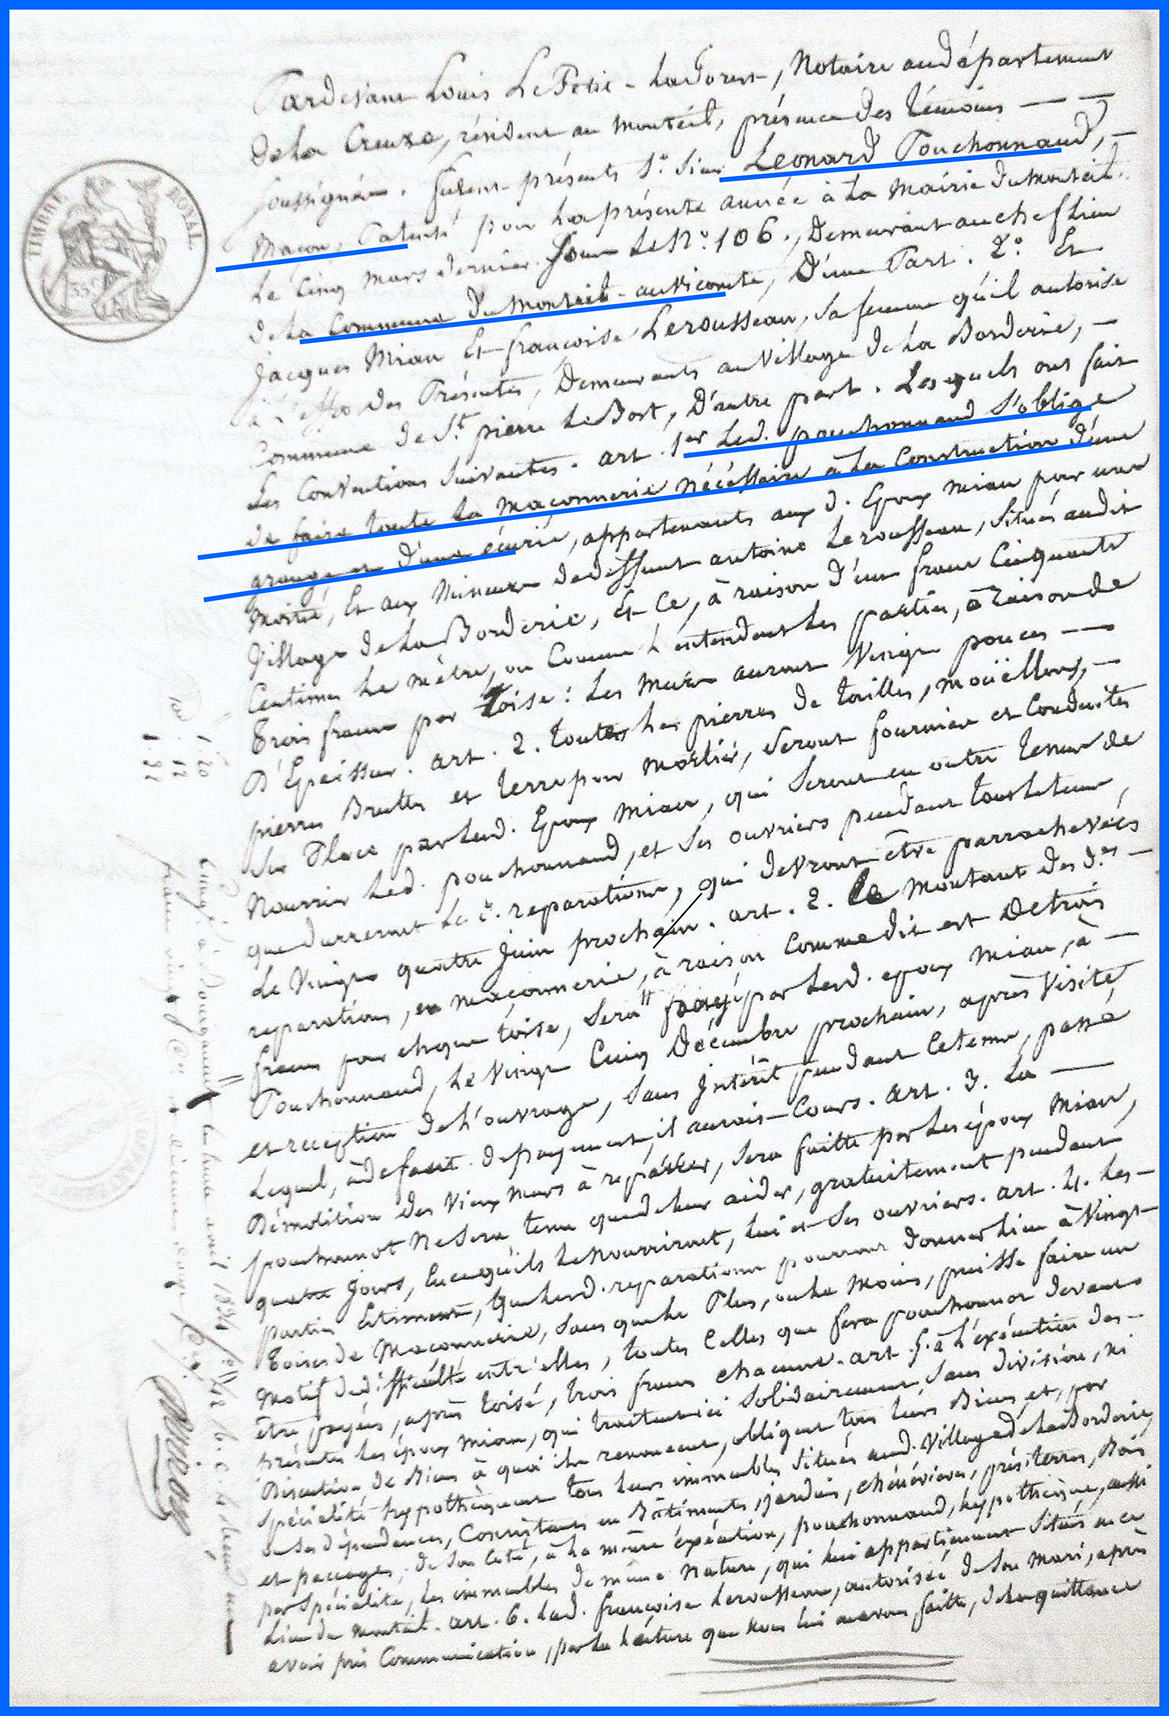 TIMBRE ROYAL
35c
Pardevant Louis LePetit-Laforest, Notaire au département
de la Creuse, résident au Monteil, présence des témoins
soussignés. furent présents 1° Sieur Léonard Pouchonnaud,
Maçon, Patenté pour la présente année à la Mairie du Monteil
le Cinq mars dernier. Sous le N° 106., Demeurant au chef lieu
de la Commune du Monteil-au-Vicomte, D'une Part. 2° Et
Jacques Miau Et françoise Lerousseau, sa femme qu'il autorise
à l'effet des Présentes, Demeurants au Village de La Borderie,
Commune de St. pierre Le Bost, D'autre part. Lesquels ont fait
Les Conventions Suivantes. art. 1er Led. pouchonnaud S'oblige
de faire toute la maçonnerie nécéssaire à la Construction d'une
grange et d'une écurie, appartenants aux d. Epoux Miau pour une
Moitié, Et aux Mineurs dudeffunt antoine Lerousseau, situés audit
Village de La Borderie, Et Ce, à raison d'un franc Cinquante
Centimes Le mètre, ou Comme L'entendent Les parties, à raison de
Trois francs par toise : Les Murs auront Vingt pouces
D'Epaisseur. art. 2. toutes Les pierres de tailles, moëllons,
pierres Brutes et terre pour Mortier, seront fournies et Conduites
sur Place par Lesd. Epoux Miau, qui seront en outre tenus de
Nourrir Led. pouchonnaud, et ses ouvriers pendant tout le tems,
que dureront Les d. reparations, qui devront être parachevées
Le Vingt quatre Juin prochain. art. 2. Le Montant des d.es
reparations, en maçonnerie, à raison Comme dit est De trois
francs pour chaque toise, sera payé par Lesd. epoux Miau, à
Pouchonnaud, Le Vingt Cinq Décembre prochain, après Visite
et reception de L'ouvrage, sans Intérêt pendant Ce tems, passé
Lequel, à défaut de payement, il auroit Cours. art. 3. La
Démolition des Vieux murs à repasser, sera faitte par Les époux Miau,
pouchonnot Ne sera tenu que de leur aider, gratuitement pendant
quatre Jours, En ce qu'ils Le nourriront, lui et ses ouvriers. art. 4. Les
parties Estiment, que Lesd. reparations pourront donner Lieu à Vingt
toises de Maçonnerie, sans que Le Plus, ou Le Moins, puisse faire un
motif de difficulté entr'elles, toutes Celles que fera pouchonnot devant
être payées, après toisé, trois francs chacune. art. 5. à L'exécution des
présentes Les époux Miau, qui traitent ici solidairement, sans division, ni
Discution de Biens à quoi ils renoncent, obligent tous leurs Biens et, par
spécialité hypothèquent tous leurs immeubles situés aud. Village de La Borderie,
ou ses dépendances, Consistants en Bâtiments, jardin, chénévières, prés, terres, Bois
et paccages; de son Coté, à La même éxécution, pouchonnaud, hypothèque, aussi
par spécialité, Les immeubles de même Nature, qui lui appartiennent situés au Ch.
Lieu du Monteil. art. 6. Lad. françoise Lerousseau, autorisée de son Mari, après
avoir pris Communication, par La Lecture que Nous lui avons faitte, de La quittance
1. 20
12
1. 32
Enrgé à Bourganeuf le trente avril 1834